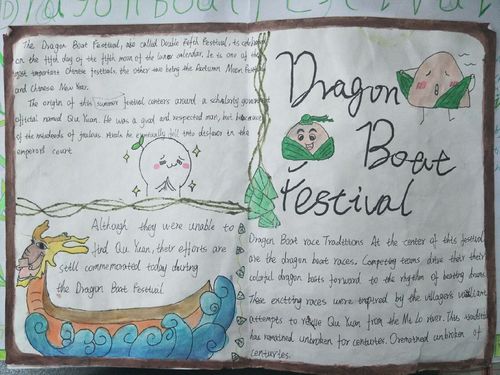 Dragon Boat Festival
The Dragon Boat Festival, also called Double Fifth Festival, is celebrated
on the fifth day of the fifth moon of the lunar calendar. It is one of the
most important Chinese festivals, the other two being the Autumn Moon Festival
and Chinese New Year.
The origin of this summer festival centers around a scholarly government
official named Qu Yuan. He was a good and respected man, but because
of the misdeeds of jealous rivals he eventually fell into disfavor in the
emperor's court.
Although they were unable to
find Qu Yuan, their efforts are
still commemorated today during
the Dragon Boat Festival
Dragon
Boat
Festival
Dragon Boat race Traditions At the center of this festival
are the dragon boat races. Competing teams drive their their
colorful dragon boats forward to the rhythm of beating drums.
These exciting races were inspired by the villager's valiant
attempts to rescue Qu Yuan from the Mi Lo river. This tradition
has remained unbroken for centuries.
centuries.